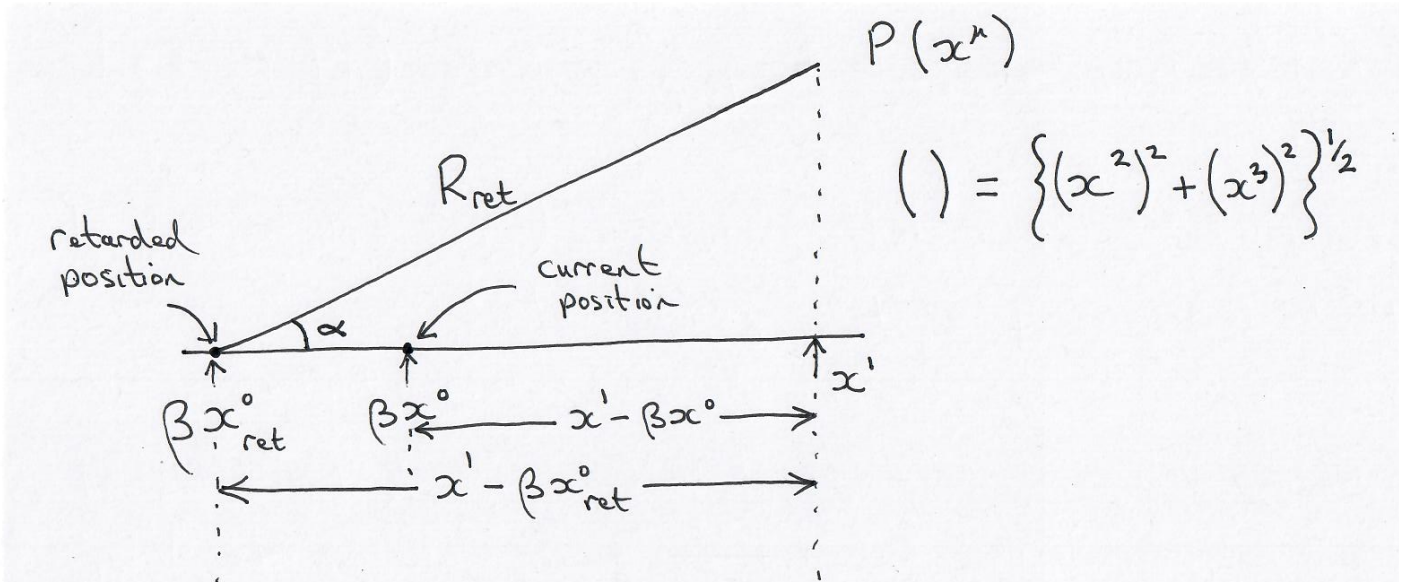 P (xᵘ)
( ) = {(x²)² + (x³)²}^½
R_ret
retarded
position
current
position
α
x¹
βx⁰_ret
βx⁰
x¹ − βx⁰
x¹ − βx⁰_ret